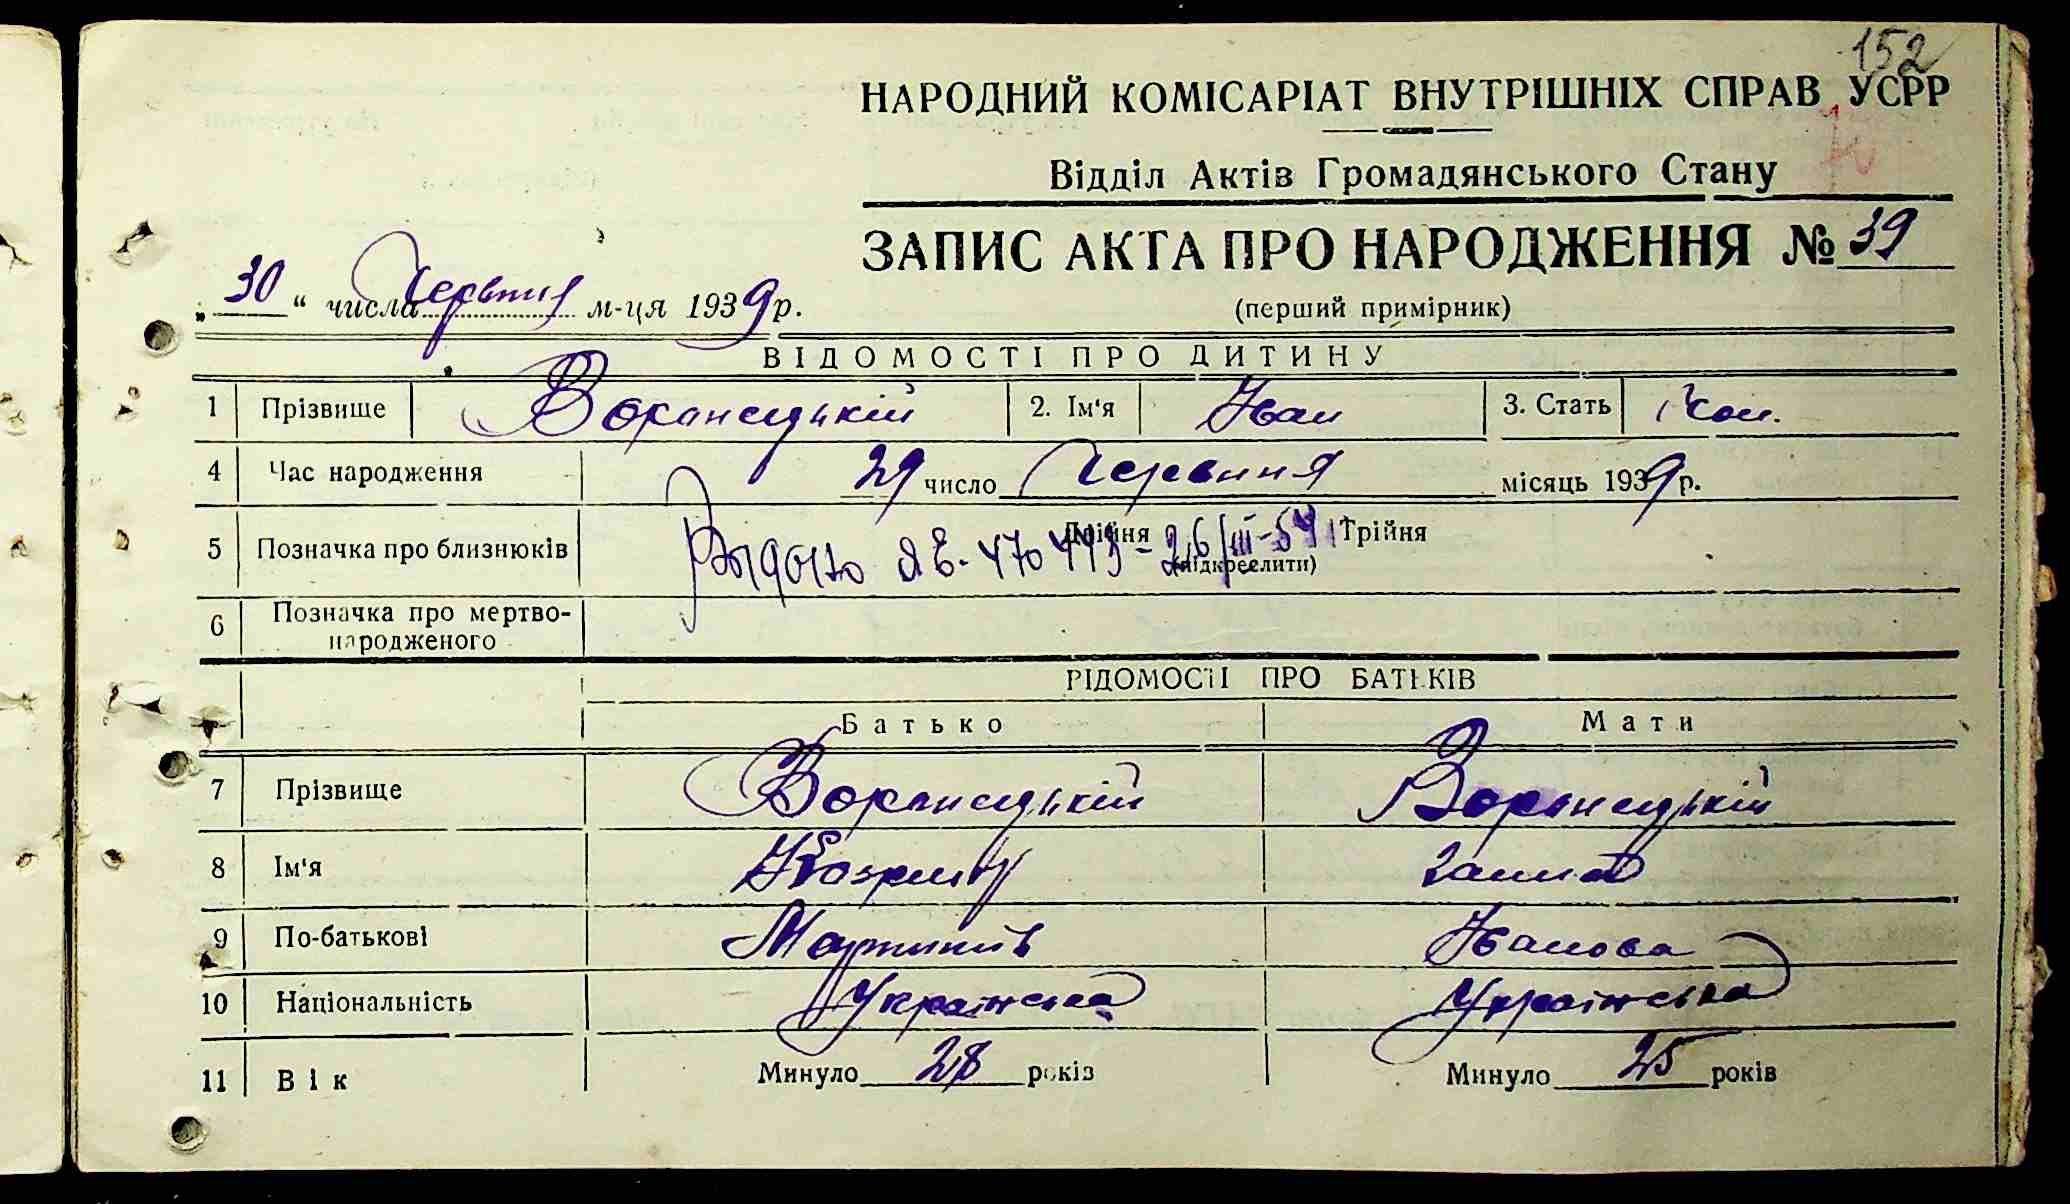 152
НАРОДНИЙ КОМІСАРІАТ ВНУТРІШНІХ СПРАВ УСРР
Відділ Актів Громадянського Стану
ЗАПИС АКТА ПРО НАРОДЖЕННЯ № 39
„30“ числа Червня м-ця 1939 р.
(перший примірник)
ВІДОМОСТІ ПРО ДИТИНУ
1 Прізвище 2. Ім'я Іван 3. Стать
4 Час народження 29 число Червня місяць 1939 р.
5 Позначка про близнюків Двійня Трійня
(підкреслити)
6 Позначка про мертво-
народженого
ВІДОМОСТІ ПРО БАТЬКІВ
Батько Мати
7 Прізвище
8 Ім'я
9 По-батькові Мартинів Іванова
10 Національність Українська Українська
11 Вік Минуло 28 років Минуло 25 років